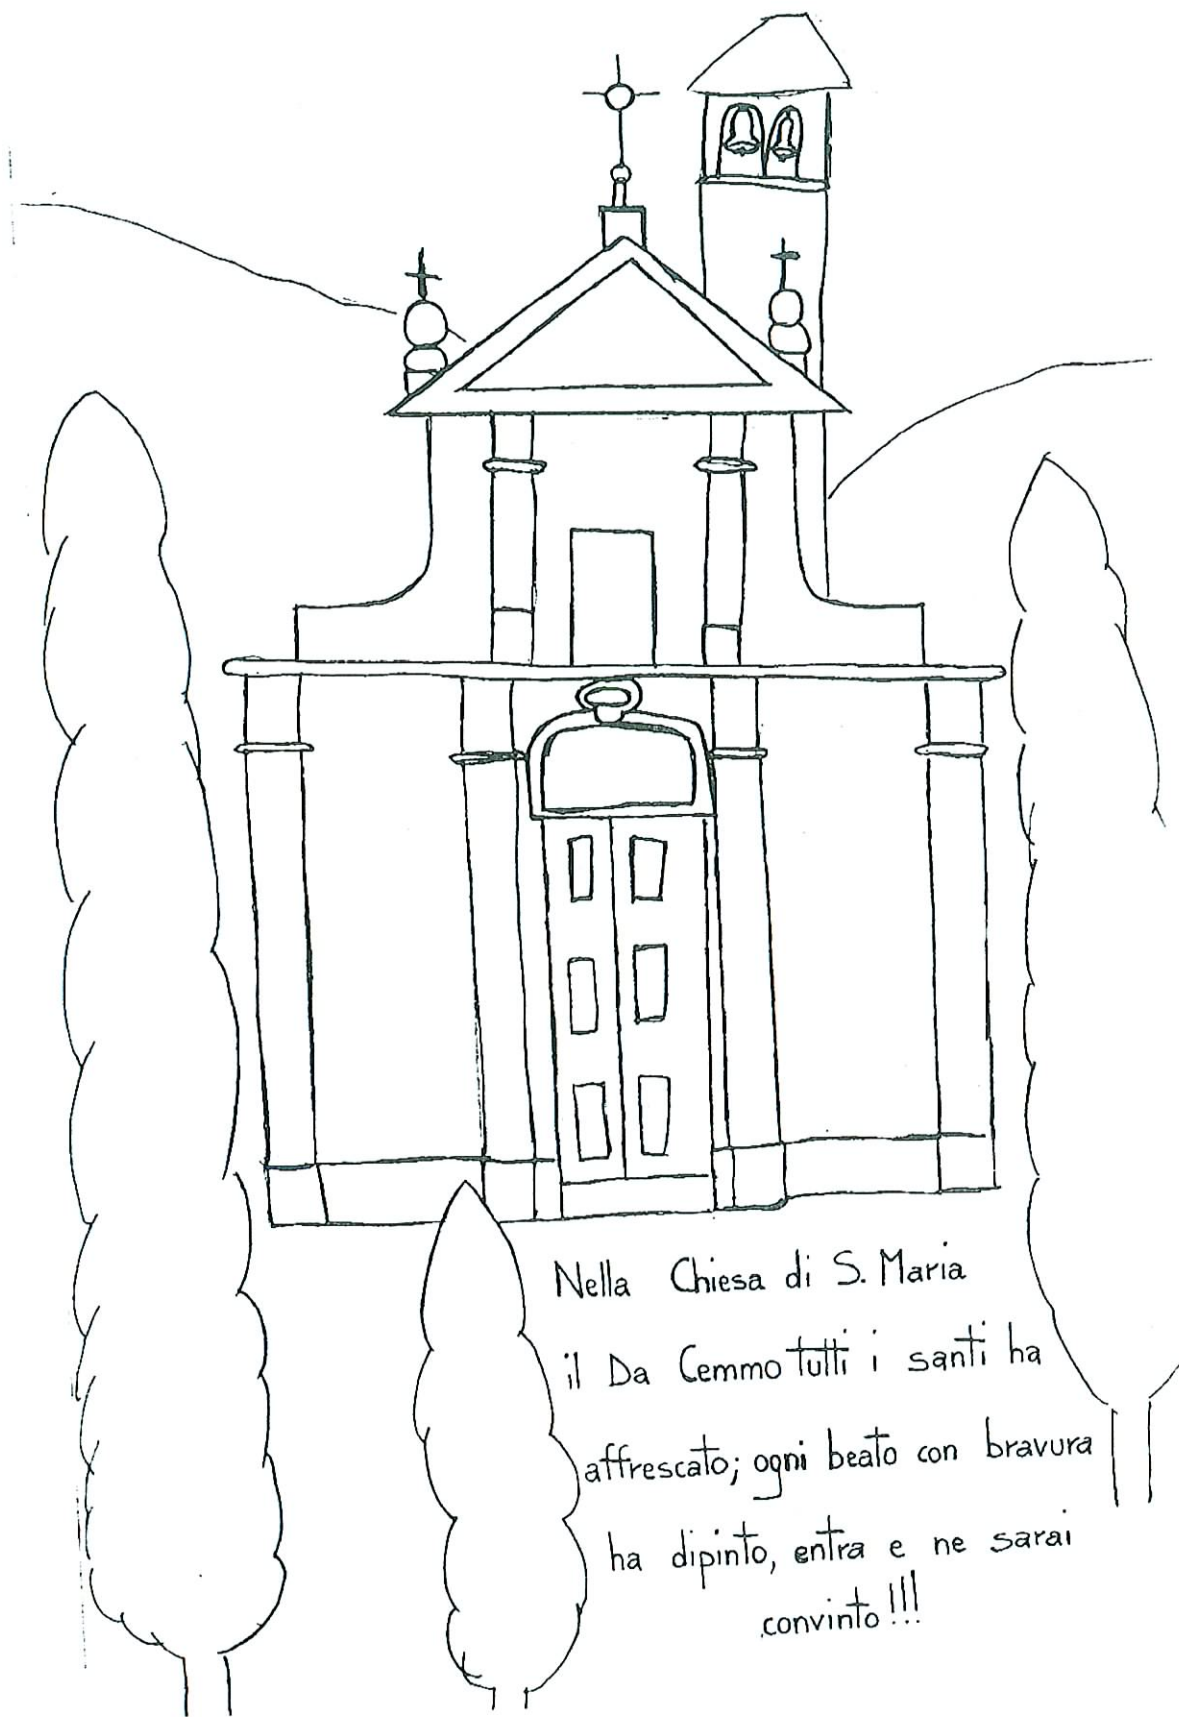 Nella Chiesa di S. Maria
il Da Cemmo tutti i santi ha
affrescato; ogni beato con bravura
ha dipinto, entra e ne sarai
convinto!!!